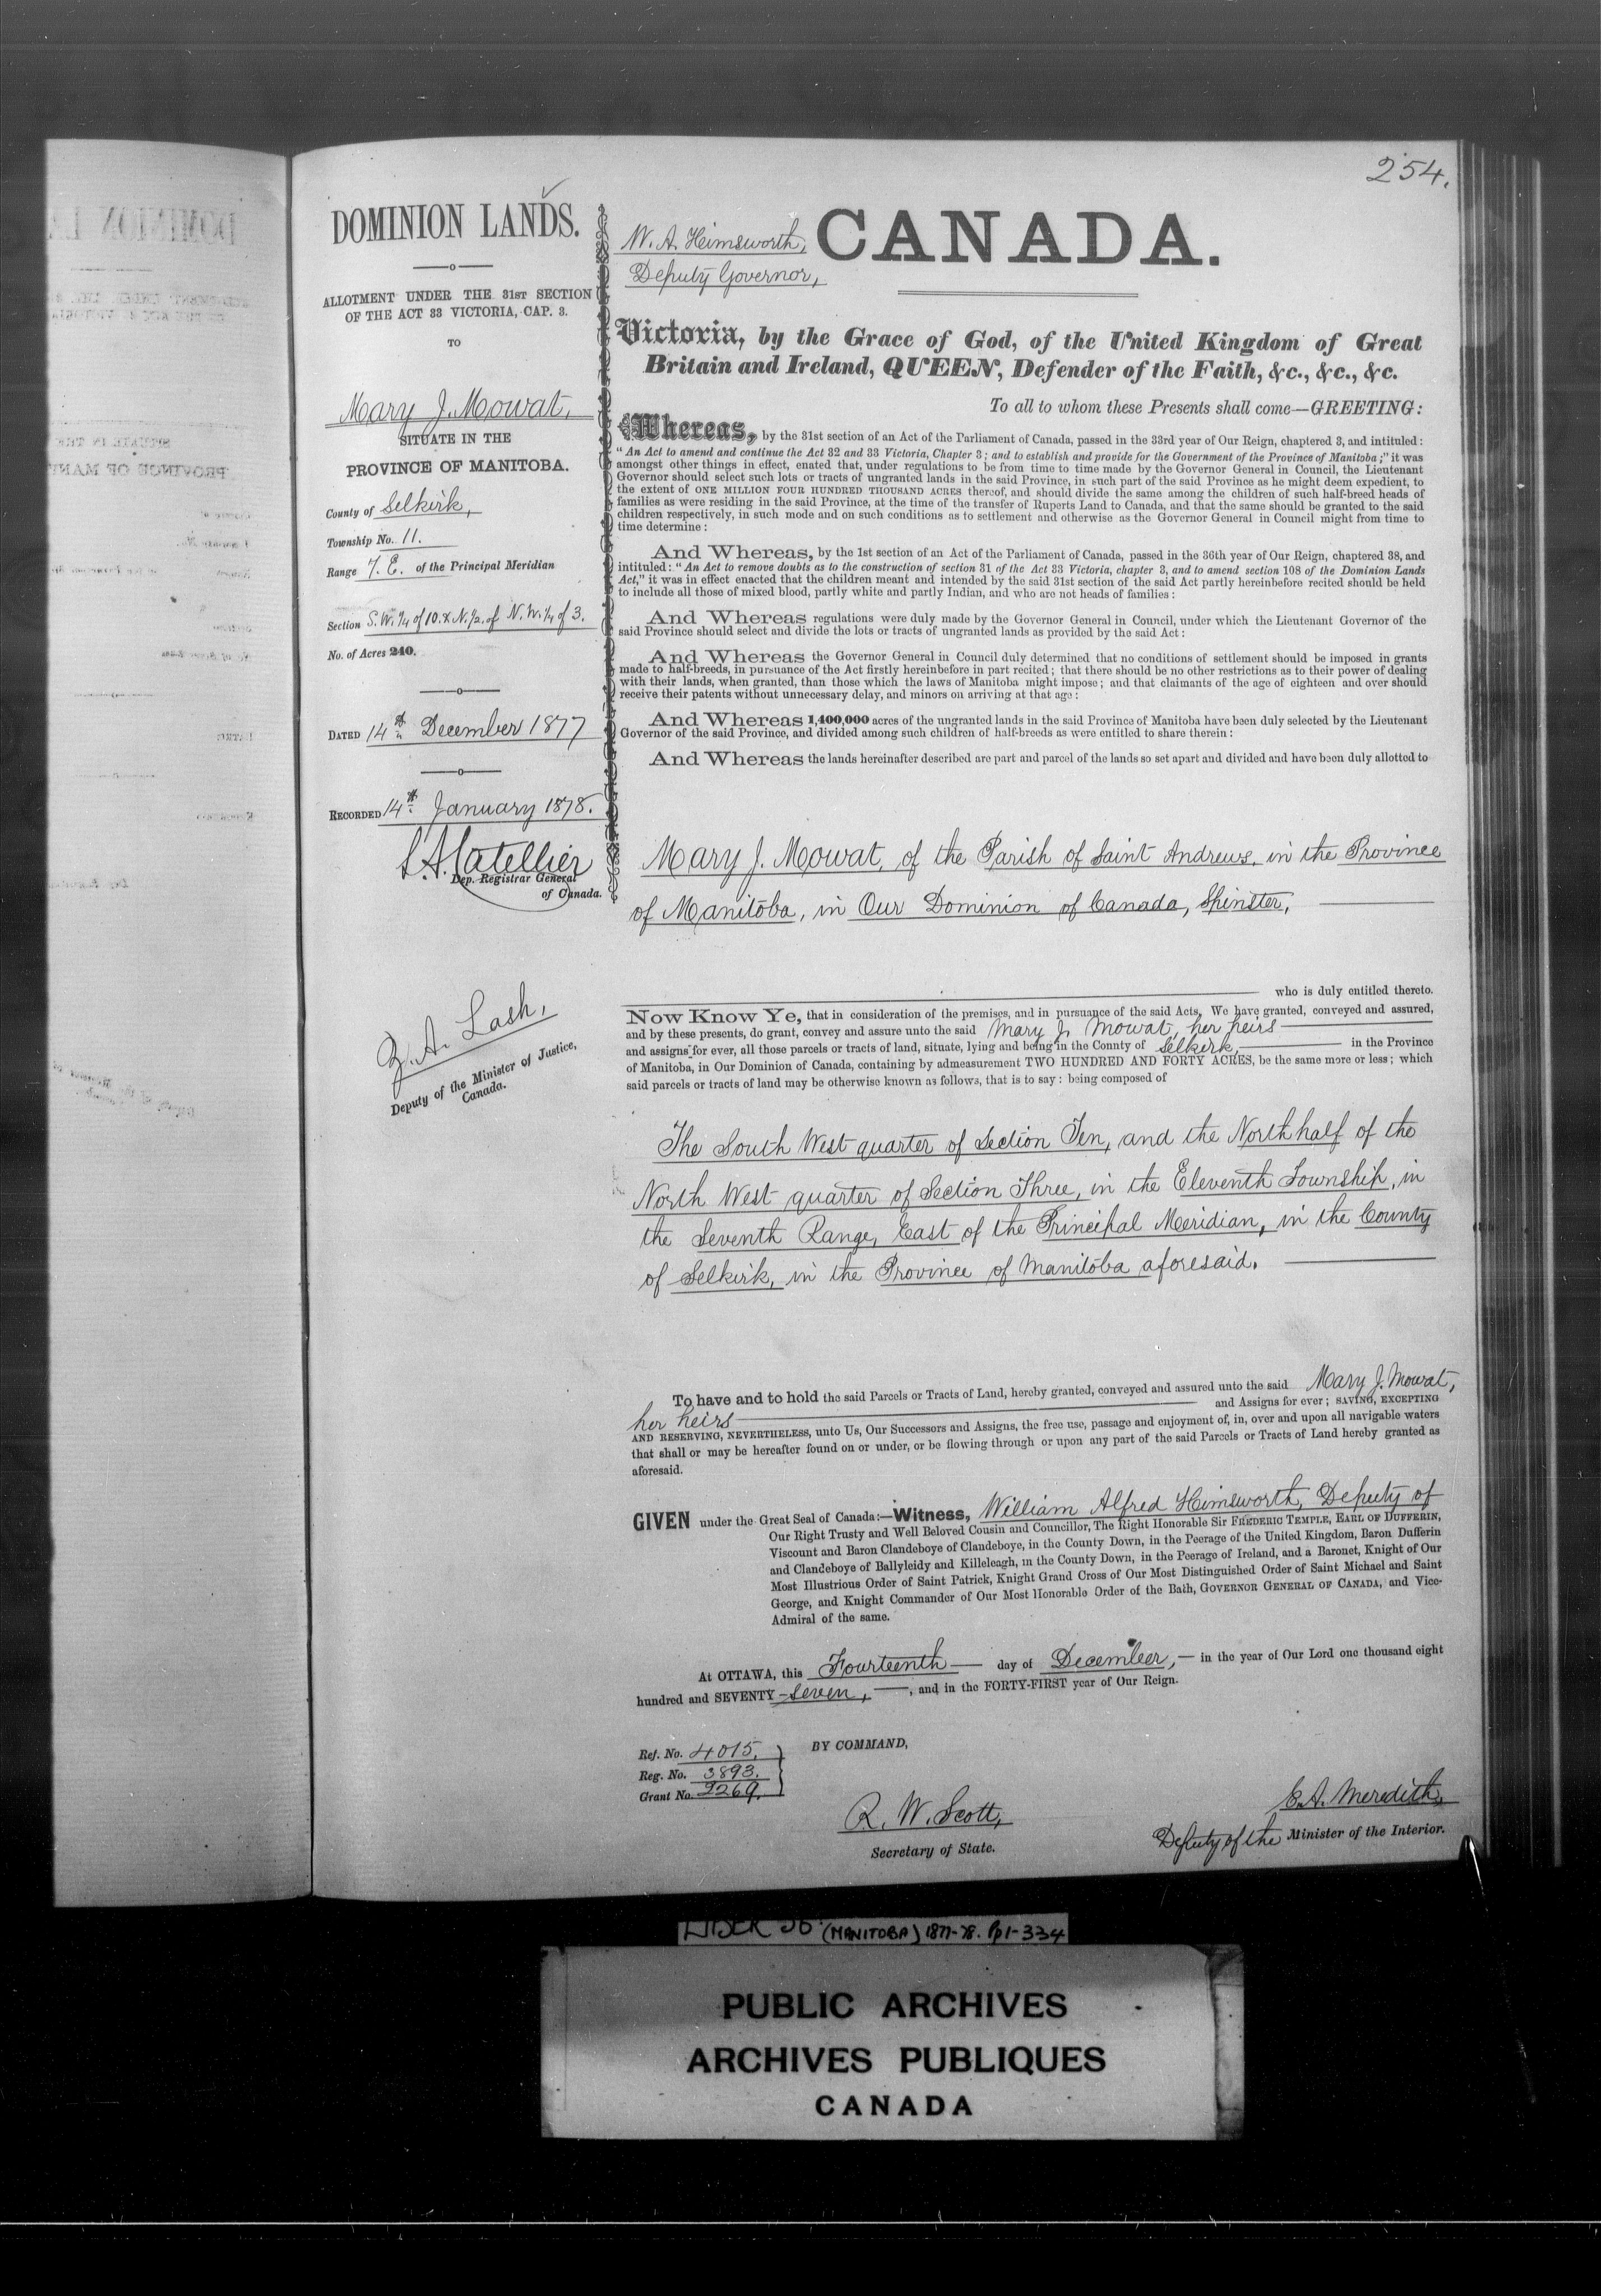 254.
DOMINION LANDS.
ALLOTMENT UNDER THE 31ST SECTION
OF THE ACT 33 VICTORIA, CAP. 3.
TO
Mary J. Mowat,
SITUATE IN THE
PROVINCE OF MANITOBA.
County of Selkirk,
Township No. 11.
Range 7. E. of the Principal Meridian
Section S. W. 1/4 of 10. & N. 1/2. of N. W. 1/4 of 3.
No. of Acres 240.
DATED 14th December 1877
RECORDED 14th January 1878.
L. A. Catellier
Dep. Registrar General
of Canada.
Z. A. Lash,
Deputy of the Minister of Justice,
Canada.
W. A. Himsworth,
Deputy Governor,
CANADA.
Victoria, by the Grace of God, of the United Kingdom of Great
Britain and Ireland, QUEEN, Defender of the Faith, &c., &c., &c.
To all to whom these Presents shall come—GREETING:
Whereas, by the 31st section of an Act of the Parliament of Canada, passed in the 33rd year of Our Reign, chaptered 3, and intituled:
"An Act to amend and continue the Act 32 and 33 Victoria, Chapter 3; and to establish and provide for the Government of the Province of Manitoba;" it was
amongst other things in effect, enated that, under regulations to be from time to time made by the Governor General in Council, the Lieutenant
Governor should select such lots or tracts of ungranted lands in the said Province, in such part of the said Province as he might deem expedient, to
the extent of ONE MILLION FOUR HUNDRED THOUSAND ACRES thereof, and should divide the same among the children of such half-breed heads of
families as were residing in the said Province, at the time of the transfer of Ruperts Land to Canada, and that the same should be granted to the said
children respectively, in such mode and on such conditions as to settlement and otherwise as the Governor General in Council might from time to
time determine:
And Whereas, by the 1st section of an Act of the Parliament of Canada, passed in the 36th year of Our Reign, chaptered 38, and
intituled: "An Act to remove doubts as to the construction of section 31 of the Act 33 Victoria, chapter 3, and to amend section 108 of the Dominion Lands
Act," it was in effect enacted that the children meant and intended by the said 31st section of the said Act partly hereinbefore recited should be held
to include all those of mixed blood, partly white and partly Indian, and who are not heads of families:
And Whereas regulations were duly made by the Governor General in Council, under which the Lieutenant Governor of the
said Province should select and divide the lots or tracts of ungranted lands as provided by the said Act:
And Whereas the Governor General in Council duly determined that no conditions of settlement should be imposed in grants
made to half-breeds, in pursuance of the Act firstly hereinbefore in part recited; that there should be no other restrictions as to their power of dealing
with their lands, when granted, than those which the laws of Manitoba might impose; and that claimants of the age of eighteen and over should
receive their patents without unnecessary delay, and minors on arriving at that age:
And Whereas 1,400,000 acres of the ungranted lands in the said Province of Manitoba have been duly selected by the Lieutenant
Governor of the said Province, and divided among such children of half-breeds as were entitled to share therein:
And Whereas the lands hereinafter described are part and parcel of the lands so set apart and divided and have been duly allotted to
Mary J. Mowat, of the Parish of Saint Andrews, in the Province
of Manitoba, in Our Dominion of Canada, Spinster,
who is duly entitled thereto.
Now Know Ye, that in consideration of the premises, and in pursuance of the said Acts, We have granted, conveyed and assured,
and by these presents, do grant, convey and assure unto the said Mary J. Mowat, her heirs
and assigns for ever, all those parcels or tracts of land, situate, lying and being in the County of Selkirk, in the Province
of Manitoba, in Our Dominion of Canada, containing by admeasurement TWO HUNDRED AND FORTY ACRES, be the same more or less; which
said parcels or tracts of land may be otherwise known as follows, that is to say: being composed of
The South West quarter of Section Ten, and the North half of the
North West quarter of Section Three, in the Eleventh Township, in
the Seventh Range, East of the Principal Meridian, in the County
of Selkirk, in the Province of Manitoba aforesaid.
To have and to hold the said Parcels or Tracts of Land, hereby granted, conveyed and assured unto the said Mary J. Mowat,
her heirs and Assigns for ever; SAVING, EXCEPTING
AND RESERVING, NEVERTHELESS, unto Us, Our Successors and Assigns, the free use, passage and enjoyment of, in, over and upon all navigable waters
that shall or may be hereafter found on or under, or be flowing through or upon any part of the said Parcels or Tracts of Land hereby granted as
aforesaid.
GIVEN under the Great Seal of Canada:—Witness, William Alfred Himsworth, Deputy of
Our Right Trusty and Well Beloved Cousin and Councillor, The Right Honorable Sir FREDERIC TEMPLE, EARL OF DUFFERIN,
Viscount and Baron Clandeboye of Clandeboye, in the County Down, in the Peerage of the United Kingdom, Baron Dufferin
and Clandeboye of Ballyleidy and Killeleagh, in the County Down, in the Peerage of Ireland, and a Baronet, Knight of Our
Most Illustrious Order of Saint Patrick, Knight Grand Cross of Our Most Distinguished Order of Saint Michael and Saint
George, and Knight Commander of Our Most Honorable Order of the Bath, GOVERNOR GENERAL OF CANADA, and Vice-
Admiral of the same.
At OTTAWA, this Fourteenth day of December, in the year of Our Lord one thousand eight
hundred and SEVENTY-seven, and in the FORTY-FIRST year of Our Reign.
Ref. No. 4015.
Reg. No. 3893.
Grant No. 2269.
BY COMMAND,
R. W. Scott,
Secretary of State.
E. A. Meredith,
Deputy of the Minister of the Interior.
(MANITOBA) 1877-78. Pp1-334
PUBLIC ARCHIVES
ARCHIVES PUBLIQUES
CANADA